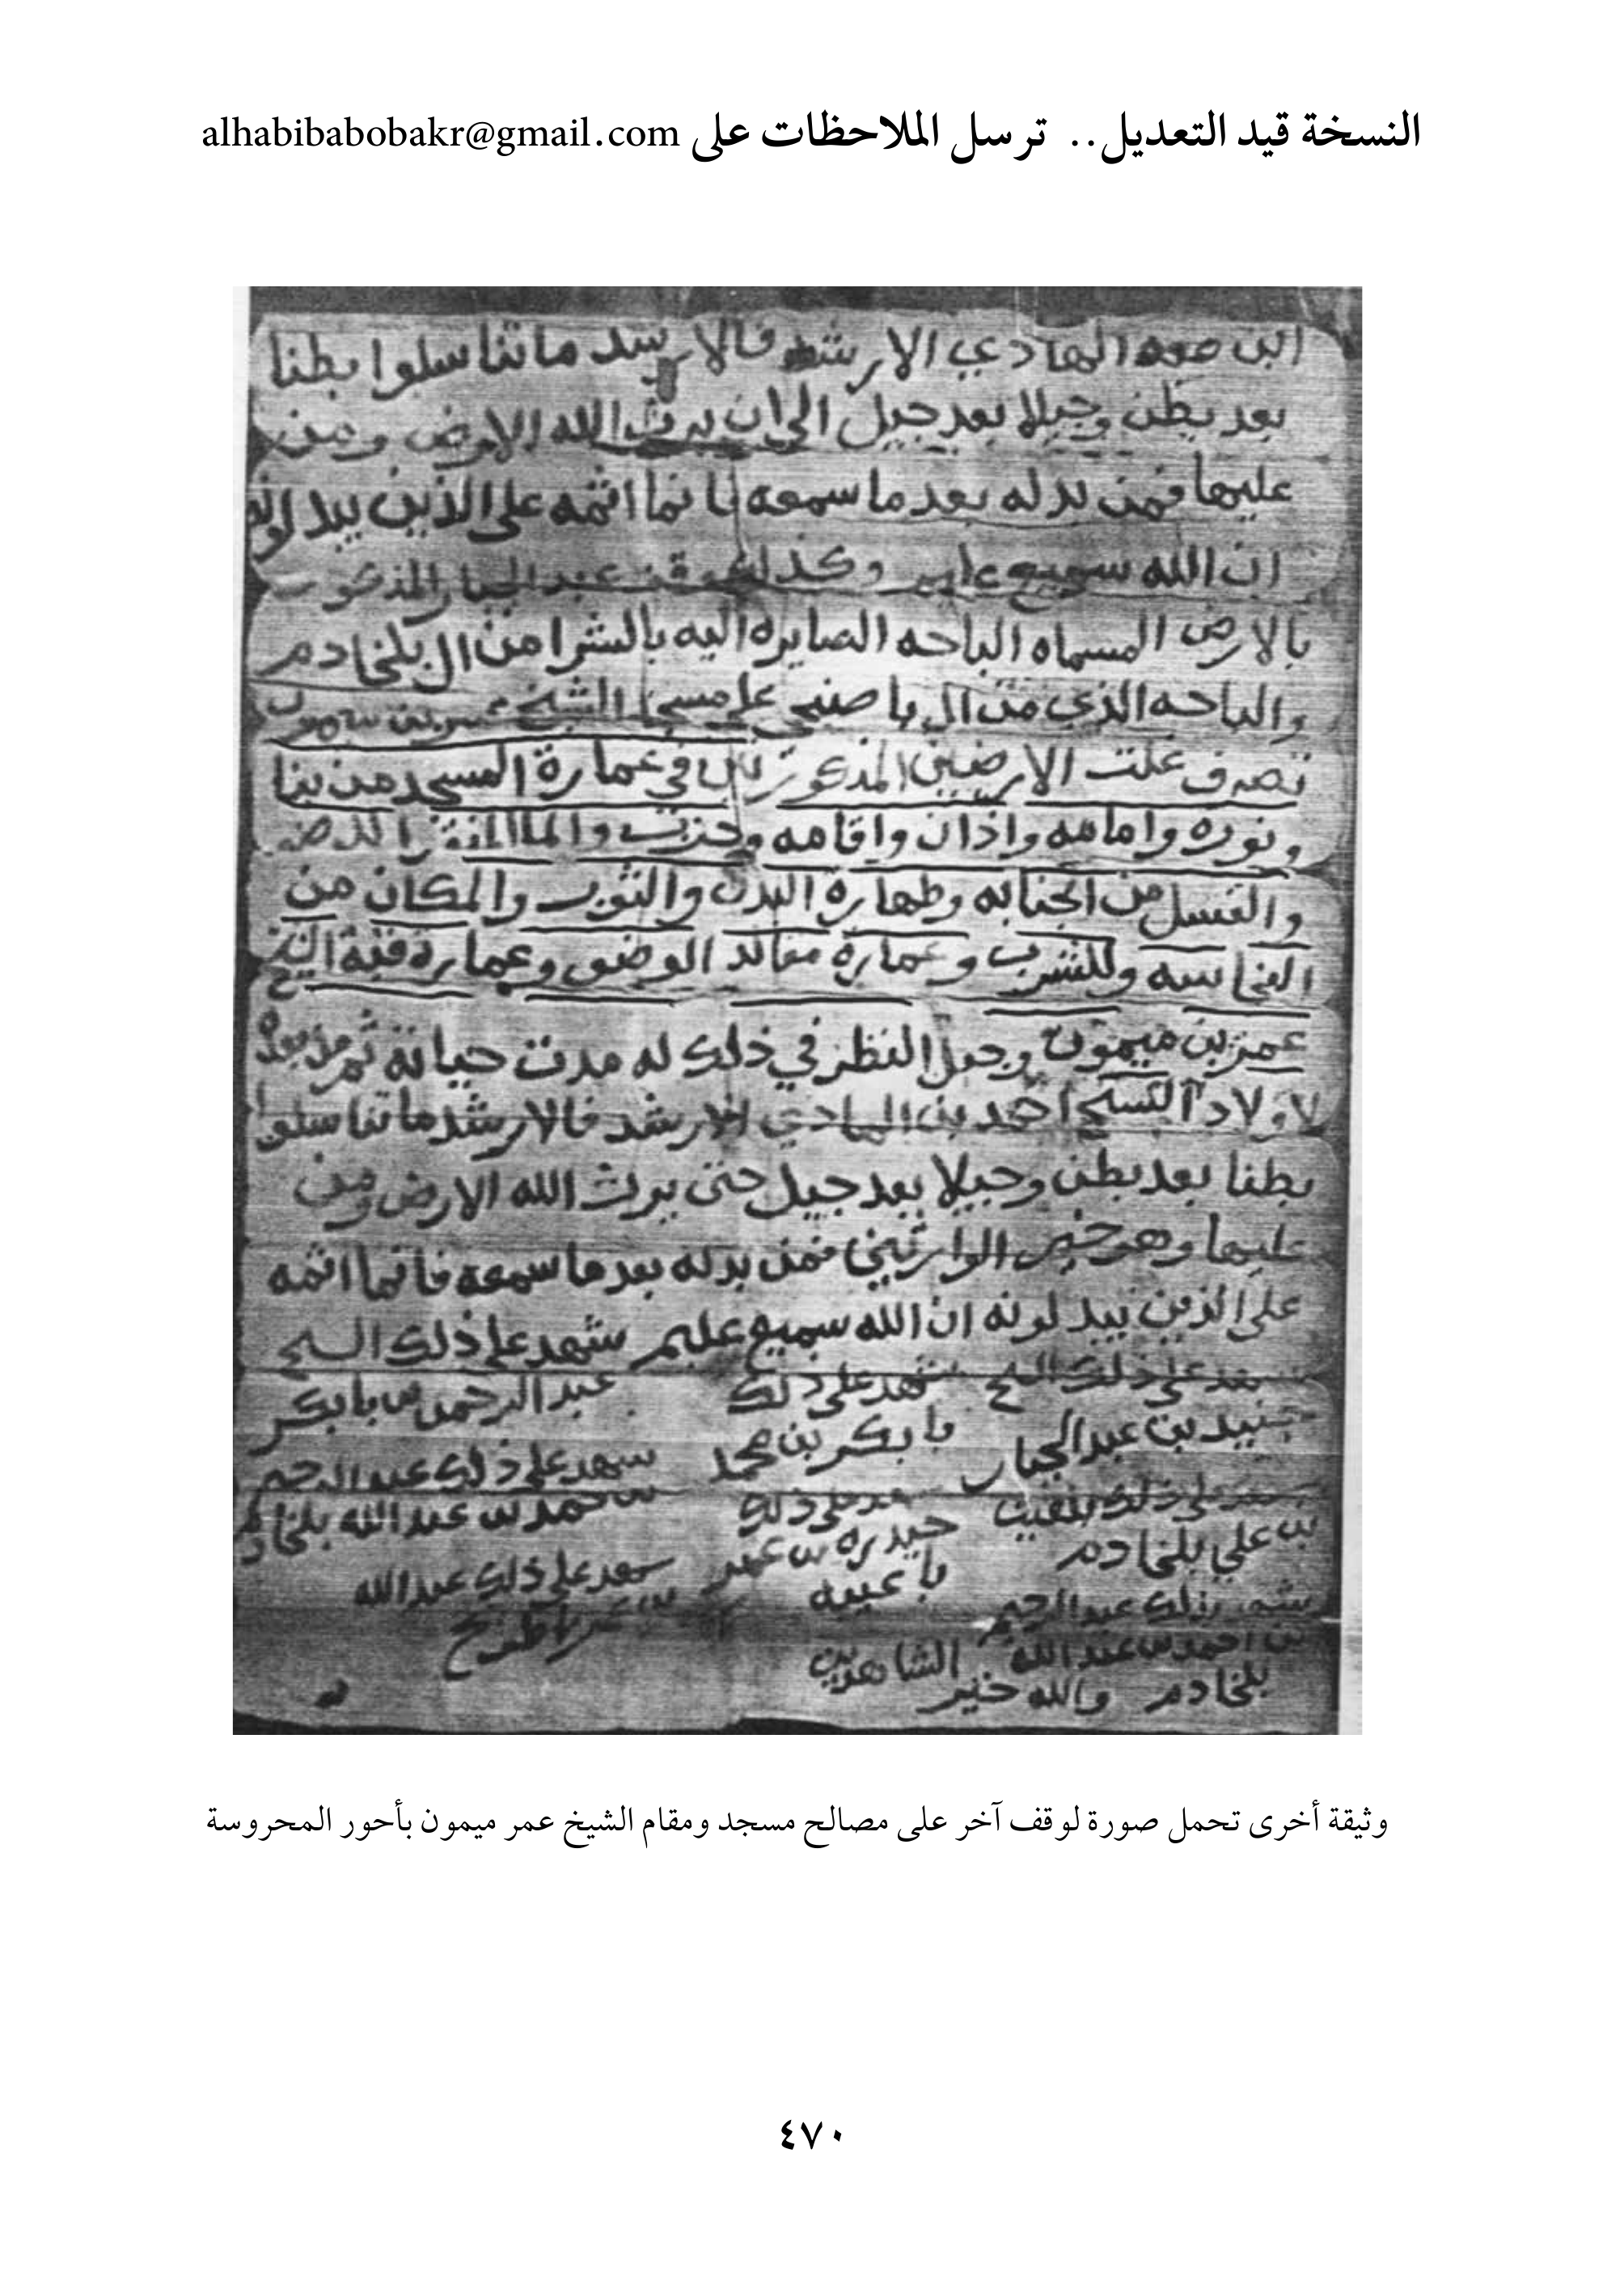 النسخة قيد التعديل.. ترسل الملاحظات على alhabibabobakr@gmail.com
ابن الهادي الارشد فالارشد ماتناسلوا بطنا
بعد بطن وجيلا بعد جيل الى ان يرث الله الارض ومن
عليها فمن بدله بعد ما سمعه فانما اثمه على الذين يبدلونه
ان الله سميع عليم وكذلك وقف عبد الجبار المذكور
بالارض المسماه الباحه الصايره اليه بالشرا من ال بلخادم
والباحه الذي من ال با على مسجد الشيخ عمر بن ميمون
تصرف غلت الارضين المذكورتين في عمارة المسجد من بنا
ونوره وامامه واذان واقامه وحزب والما
والغسل من الجنابه وطهارة البدن والثوب والمكان من
النجاسه وللشرب وعمارة الوضو وعمارة قبة الشيخ
عمر بن ميمون وجعل النظر في ذلك له مدت حياته ثم من بعده
لاولاد الشيخ احمد بن الهادي الارشد فالارشد ماتناسلوا
بطنا بعد بطن وجيلا بعد جيل حتى يرث الله الارض ومن
عليها وهو خير الوارثين فمن بدله بعد ما سمعه فانما اثمه
على الذين يبدلونه ان الله سميع عليم شهد على ذلك الشيخ
شهد على ذلك الشيخ شهد على ذلك عبد الرحمن بن با بكر
جنيد بن عبد الجبار با بكر بن محمد شهد على ذلك عبد الرحيم
شهد على ذلك شهد على ذلك بن محمد بن عبد الله بلخادم
بن علي بلخادم حيدره بن عمر شهد على ذلك عبد الله
شهد بذلك عبد الرحيم با بن عمر
بن احمد بن عبد الله الشاهدين
بلخادم والله خير
وثيقة أخرى تحمل صورة لوقف آخر على مصالح مسجد ومقام الشيخ عمر ميمون بأحور المحروسة
٤٧٠